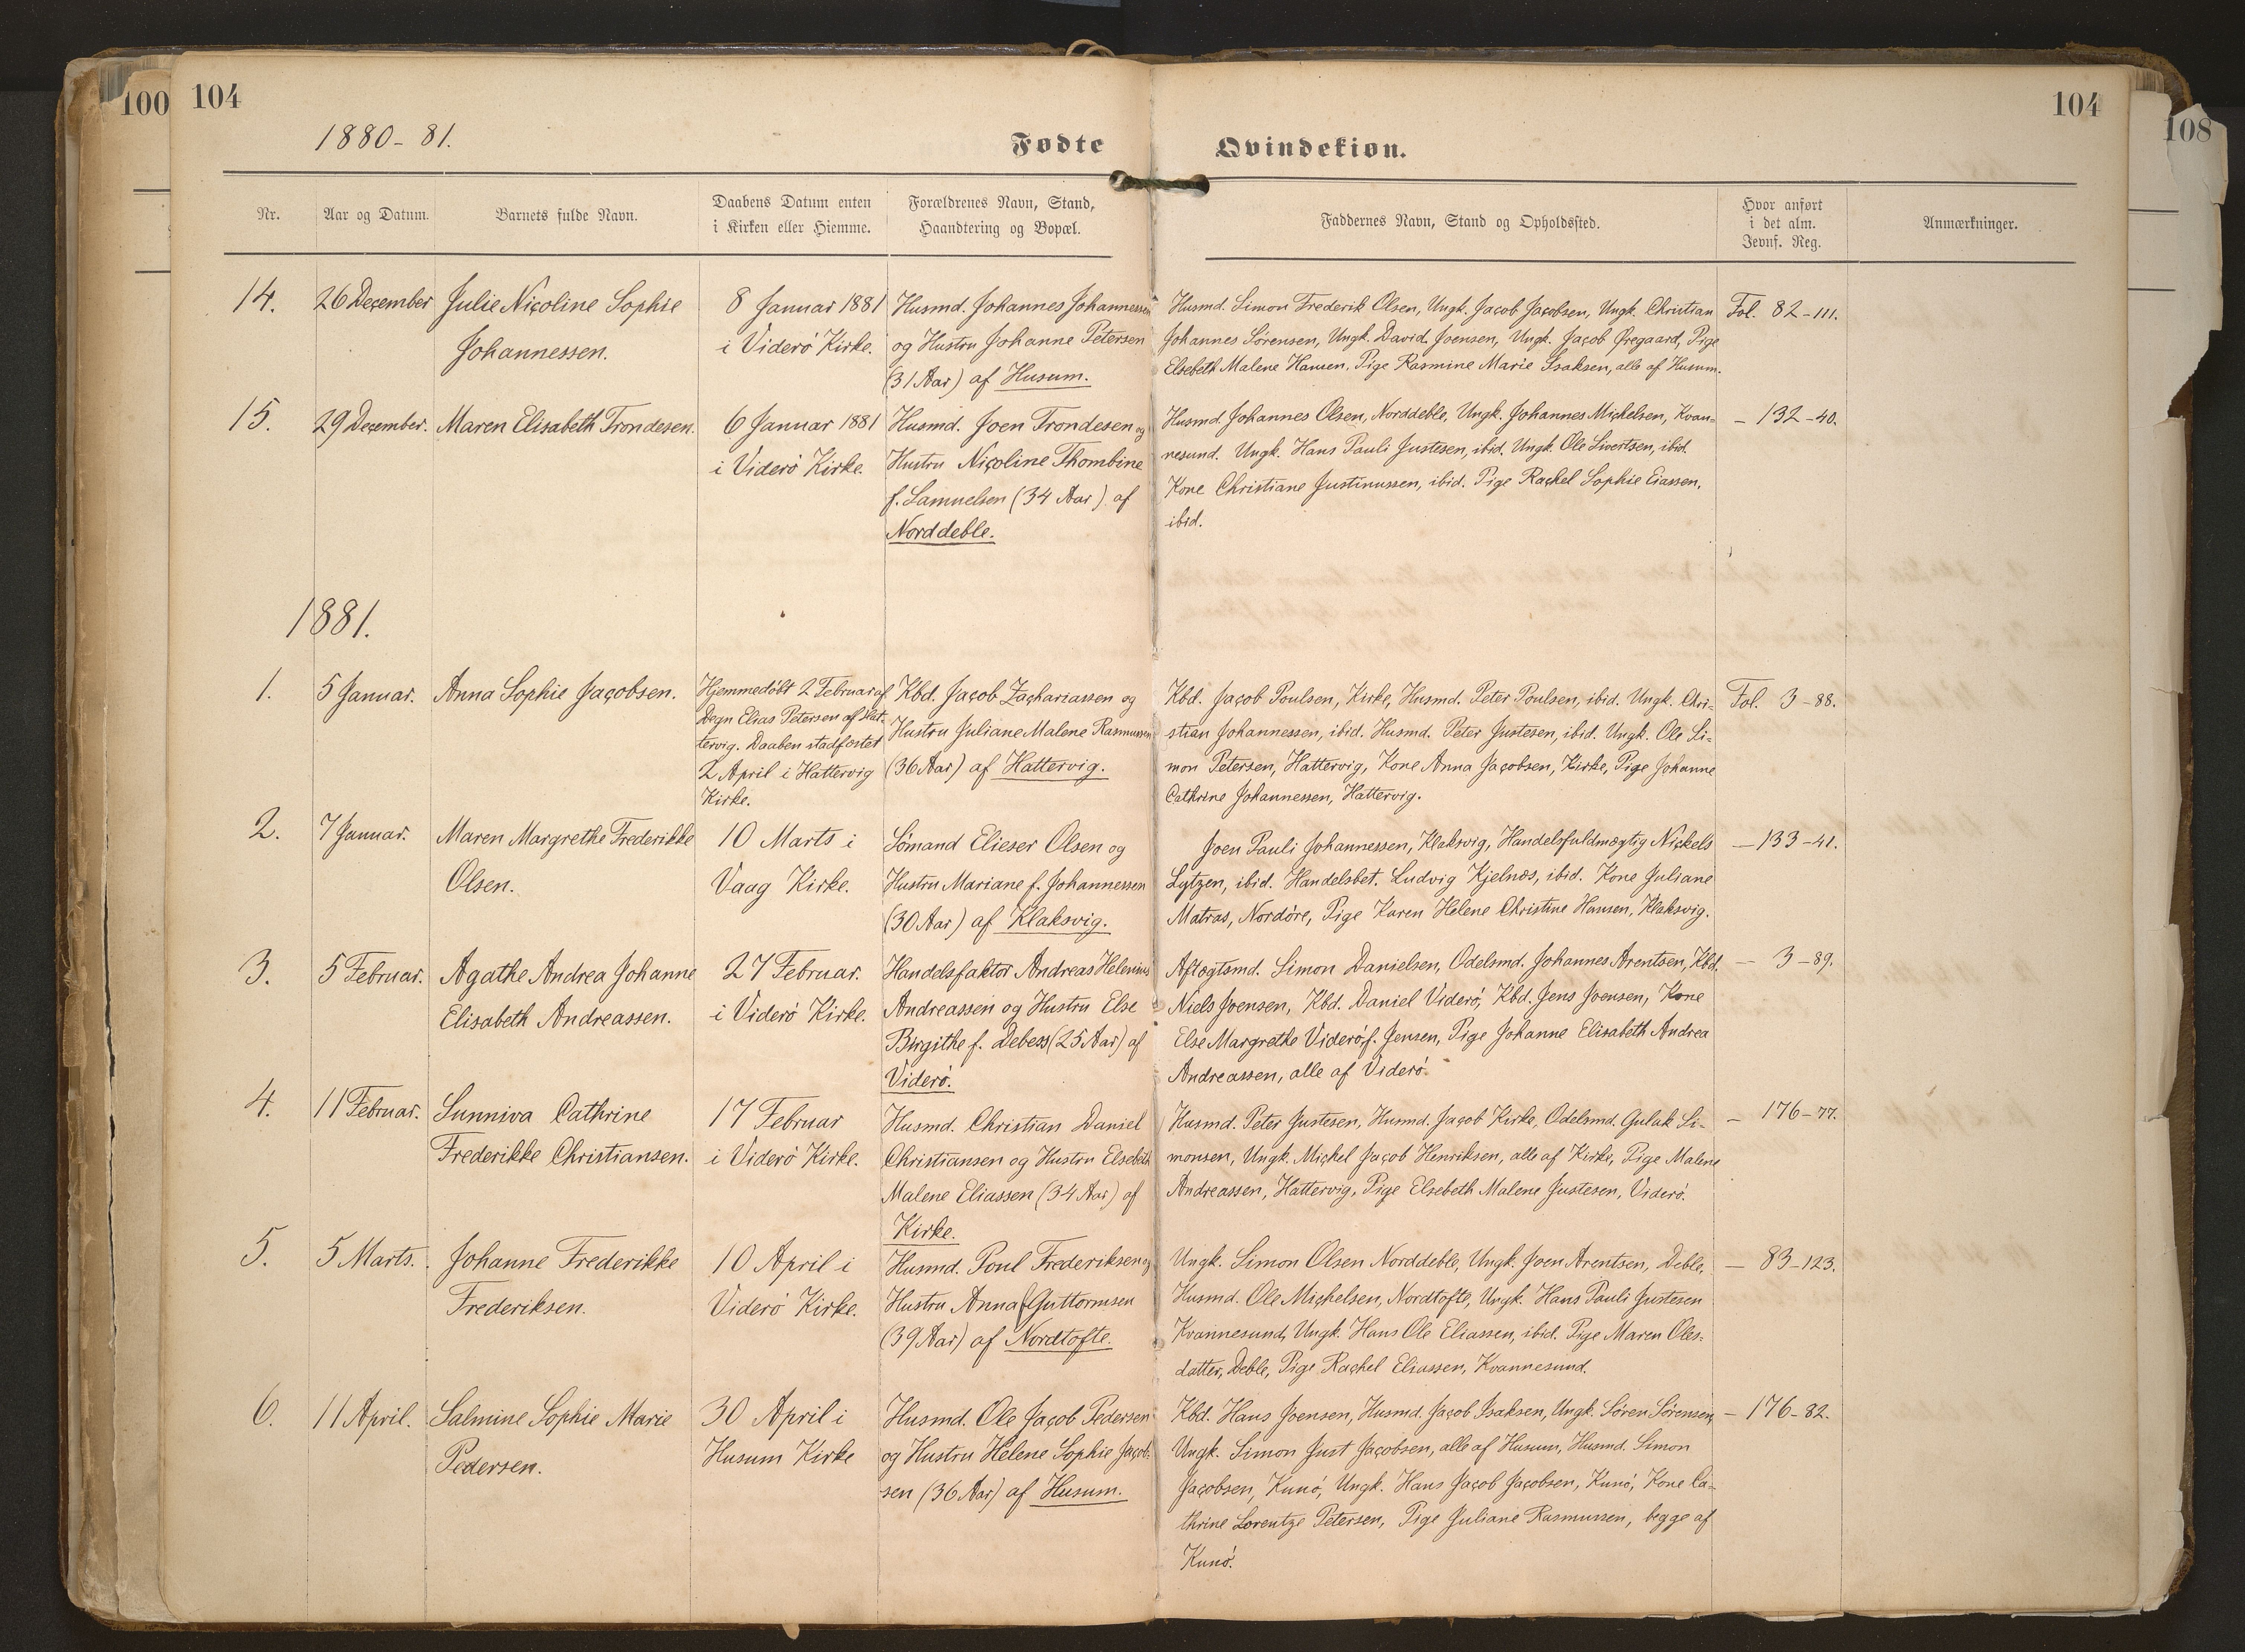 100
104
104
108
1880-81.
Fødte
Qvindekiøn.
Nr.
Aar og Datum.
Barnets fulde Navn.
Daabens Datum enten
i Kirken eller Hiemme.
Forældrenes Navn, Stand,
Haandtering og Bopæl.
Faddernes Navn, Stand og Opholdssted.
Hvor anført
i det alm.
Jevnf. Reg.
Anmærkninger.
14.
26 December
Julie Nicoline Sophie
Johannessen.
8 Januar 1881
i Viderö Kirke.
Husmd. Johannes Johannessen
og Hustru Johanne Petersen
(31 Aar) af Husum.
Husmd. Simon Frederik Olsen, Ungk. Jacob Jacobsen, Ungk. Christian
Johannes Sörensen, Ungk. David Joensen, Ungk. Jacob Öregaard, Pige
Elsebeth Malene Hansen. Pige Rasmine Marie Isaksen, alle af Husum.
Fol. 82-111.
15.
29 December.
Maren Elisabeth Trondesen.
6 Januar 1881
i Viderö Kirke.
Husmd. Joen Trondesen og
Hustru Nicoline Thombine
f. Samuelsen (34 Aar) af
Norddeble.
Husmd. Johannes Olsen, Norddeble, Ungk. Johannes Michelsen, Kvan=
nesund. Ungk. Hans Pauli Justesen, ibid. Ungk. Ole Sivertsen, ibid.
Kone Christiane Justinussen, ibid. Pige Rachel Sophie Eiassen,
ibid.
- 132-40.
1881.
1.
5 Januar.
Anna Sophie Jacobsen.
Hjemmedöbt 2 Februar af
Degn Elias Petersen af Hat-
tervig. Daaben stadfæstet
2 April i Hattervig
Kirke.
Kbd. Jacob Zachariassen og
Hustru Juliane Malene Rasmussen
(36 Aar) af Hattervig.
Kbd. Jacob Poulsen, Kirke, Husmd. Peter Poulsen, ibid. Ungk. Chri=
stian Johannessen, ibid. Husmd. Peter Justesen, ibid. Ungk. Ole Si=
mon Petersen, Hattervig, Kone Anna Jacobsen, Kirke, Pige Johanne
Cathrine Johannessen, Hattervig.
Fol. 3-88.
2.
7 Januar.
Maren Margrethe Frederikke
Olsen.
10 Marts i
Vaag Kirke.
Sömand Elieser Olsen og
Hustru Mariane f. Johannessen
(30 Aar) af Klaksvig.
Joen Pauli Johannessen, Klaksvig, Handelsfuldmægtig Nickels
Lützen, ibid. Handelsbet. Ludvig Kjelnæs, ibid. Kone Juliane
Matras, Nordöre, Pige Karen Helene Christine Hansen, Klaksvig.
- 133-41.
3.
5 Februar.
Agathe Andrea Johanne
Elisabeth Andreassen.
27 Februar.
i Viderö Kirke.
Handelsfaktor Andreas Helenius
Andreassen og Hustru Else
Birgithe f. Debess (25 Aar) af
Viderö.
Aftægtsmd. Simon Danielsen, Odelsmd. Johannes Arentsen, Kbd.
Niels Joensen, Kbd. Daniel Viderö, Kbd. Jens Joensen, Kone
Else Margrethe Viderö f. Jensen, Pige Johanne Elisabeth Andrea
Andreassen, alle af Viderö.
- 3-89.
4.
11 Februar.
Sunniva Cathrine
Frederikke Christiansen.
17 Februar
i Viderö Kirke.
Husmd. Christian Daniel
Christiansen og Hustru Elsebeth
Malene Eliassen (34 Aar) af
Kirke.
Husmd. Peter Justesen, Husmd. Jacob Kirke, Odelsmd. Gulak Si=
monsen, Ungk. Michel Jacob Henriksen, alle af Kirke, Pige Malene
Andreassen, Hattervig, Pige Elsebeth Malene Justesen, Viderö.
- 176-77.
5.
5 Marts.
Johanne Frederikke
Frederiksen.
10 April i
Viderö Kirke.
Husmd. Poul Frederiksen og
Hustru Anna f. Guttormsen
(39 Aar) af Nordtofte.
Ungk. Simon Olsen Norddeble, Ungk. Joen Arentsen, Deble,
Husmd. Ole Michelsen, Nordtofte, Ungk. Hans Pauli Justesen
Kvannesund, Ungk. Hans Ole Eliassen, ibid. Pige Maren Oles=
datter, Deble, Pige Rachel Eliassen, Kvannesund.
- 83-123.
6.
11 April.
Salmine Sophie Marie
Pedersen.
30 April i
Husum Kirke
Husmd. Ole Jacob Pedersen
og Hustru Helene Sophie Jacob-
sen (36 Aar) af Husum.
Kbd. Hans Joensen, Husmd. Jacob Isaksen, Ungk. Sören Sörensen,
Ungk. Simon Just Jacobsen, alle af Husum, Husmd. Simon
Jacobsen, Kunö, Ungk. Hans Jacob Jacobsen, Kunö, Kone Ca=
thrine Lorentze Petersen, Pige Juliane Rasmussen, begge af
Kunö.
- 176-82.